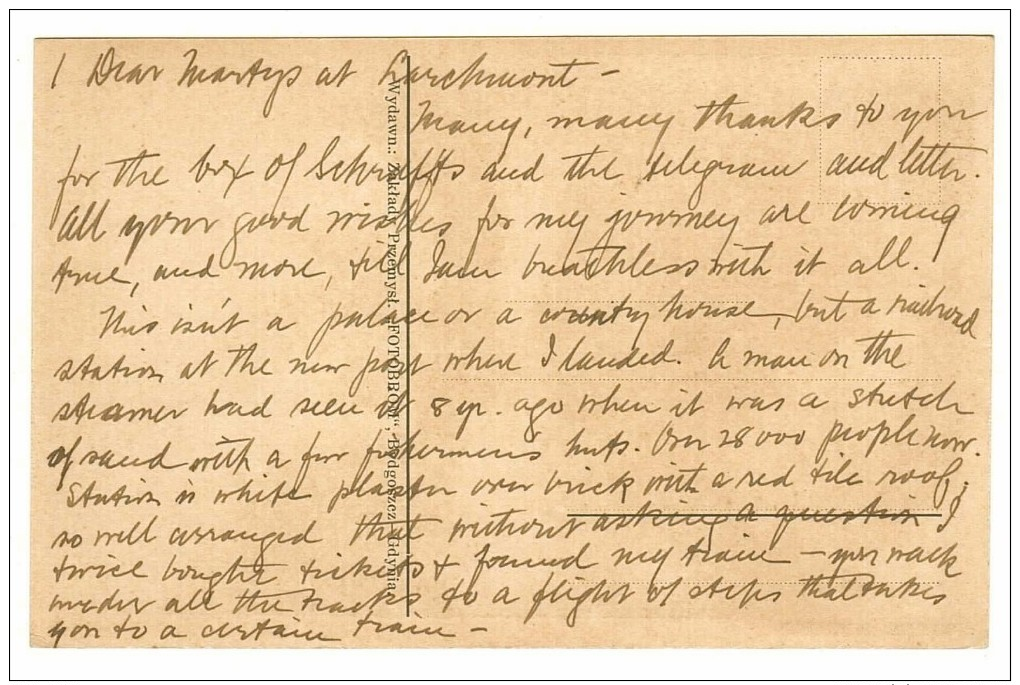 1 Dear Martys at Larchmont –
Many, many thanks to you
for the box of Schraffts and the telegram and letter.
All your good wishes for my journey are coming
true, and more, till I am breathless with it all.
This isn't a palace or a country house, but a railroad
station at the new port where I landed. A man on the
steamer had seen it 8 yr. ago when it was a stretch
of sand with a few fishermens huts. Over 28000 people now.
Station is white plaster over brick with a red tile roof,
so well arranged that without asking a question I
twice bought tickets & found my train – you walk
under all the tracks to a flight of steps that takes
you to a certain train –
Wydawn.: Zakłady Przemysł. „FOTOBROM", Bydgoszcz-Gdynia